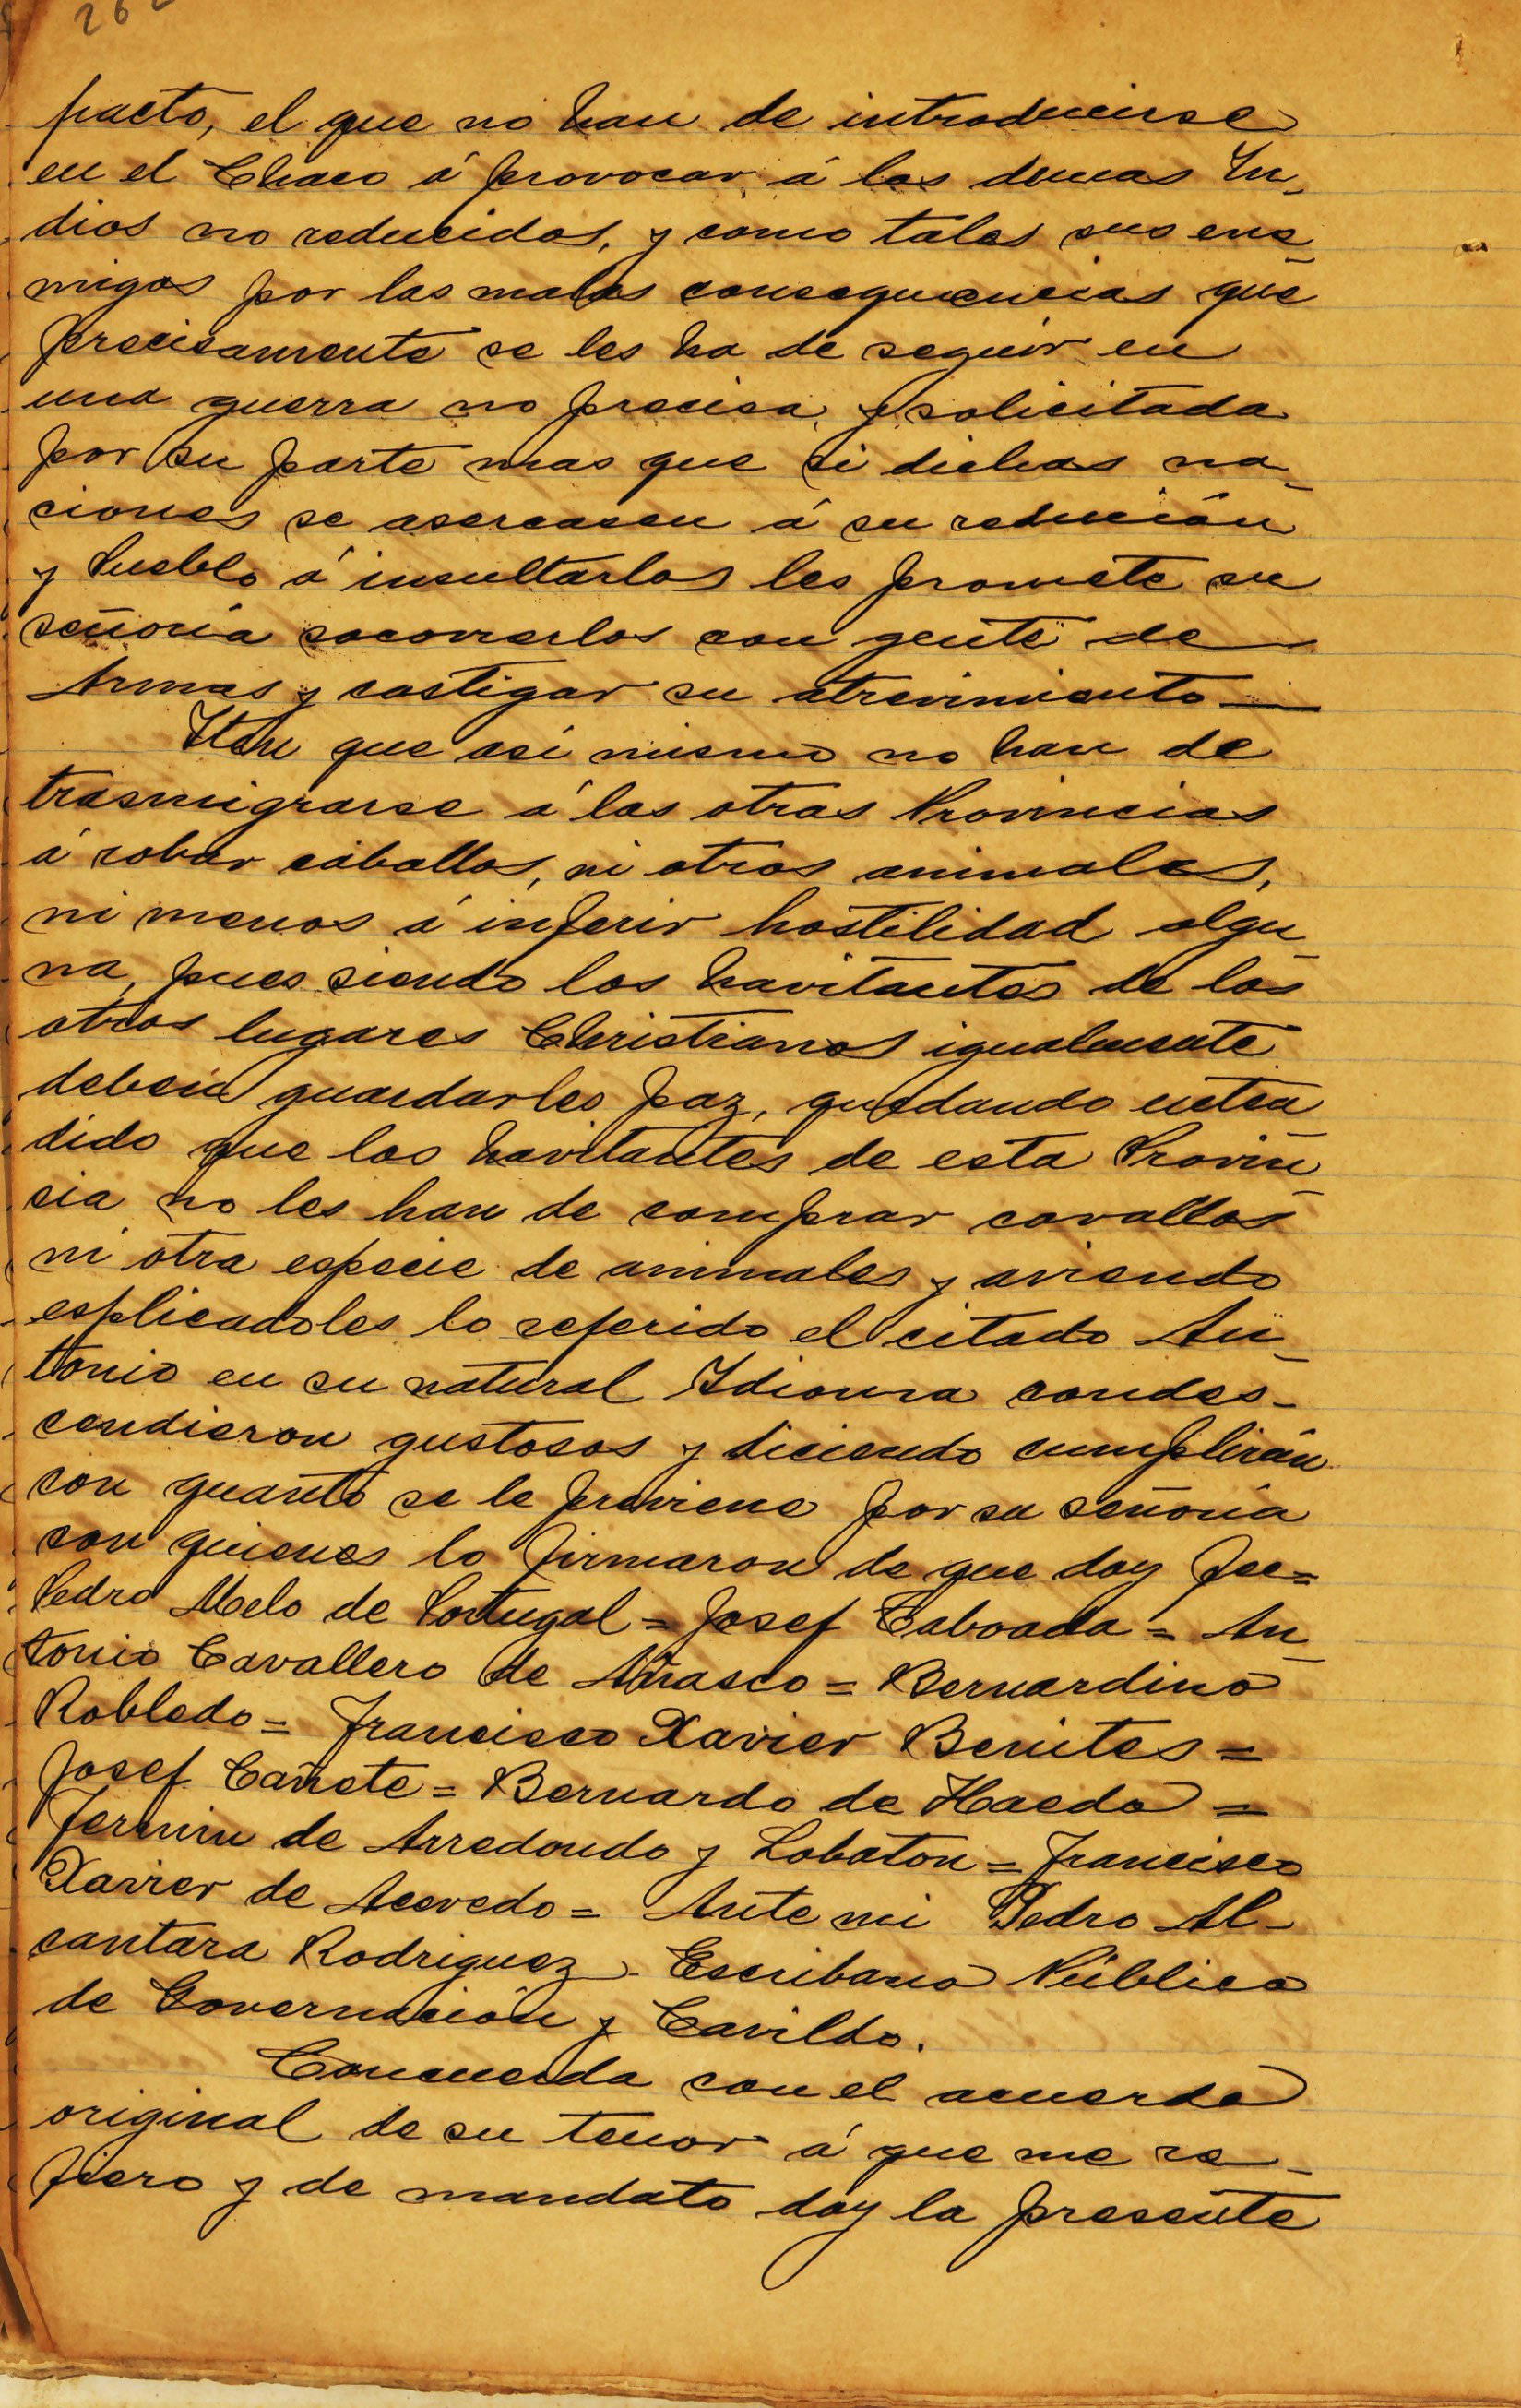 pacto, el que no han de introducirse
en el Chaco á provocar á los demas In-
dios no reducidos, y como tales sus ene-
migos por las malas consequencias que
precisamente se les ha de seguir en
una guerra no precisa, y solicitada
por su parte mas que si dichas na-
ciones se asercasen á su redución
y Pueblo á insultarlos les promete su
señoria socorrerlos con gente de
Armas y castigar su atrevimiento —
Iten que asi mismo no han de
trasmigrarse á las otras Provincias
á robar caballos, ni otros animales,
ni menos á inferir hostilidad algu-
na, pues siendo los havitantes de los
otros lugares Christianos igualmente
deben guardarles paz, quedando enten
dido que los havitantes de esta Provin-
sia no les han de comprar cavallos
ni otra especie de animales y aviendo
esplicadoles lo referido el citado An-
tonio en su natural Idioma condes-
cendieron gustosos y diciendo cumplirán
con quanto se le previene por su señoria
con quienes lo firmaron de que doy fee=
Pedro Melo de Portugal = Josef Taboada = An-
tonio Cavallero de Añasco = Bernardino
Robledo = Francisco Xavier Benites =
Josef Cañete = Bernardo de Haedo =
Fermin de Arredondo y Lobaton = Francisco
Xavier de Acevedo = Ante mi Pedro Al-
cantara Rodriguez Escribano Público
de Governación y Cavildo.
Concuerda con el acuerdo
original de su tenor á que me re-
fiero y de mandato doy la presente